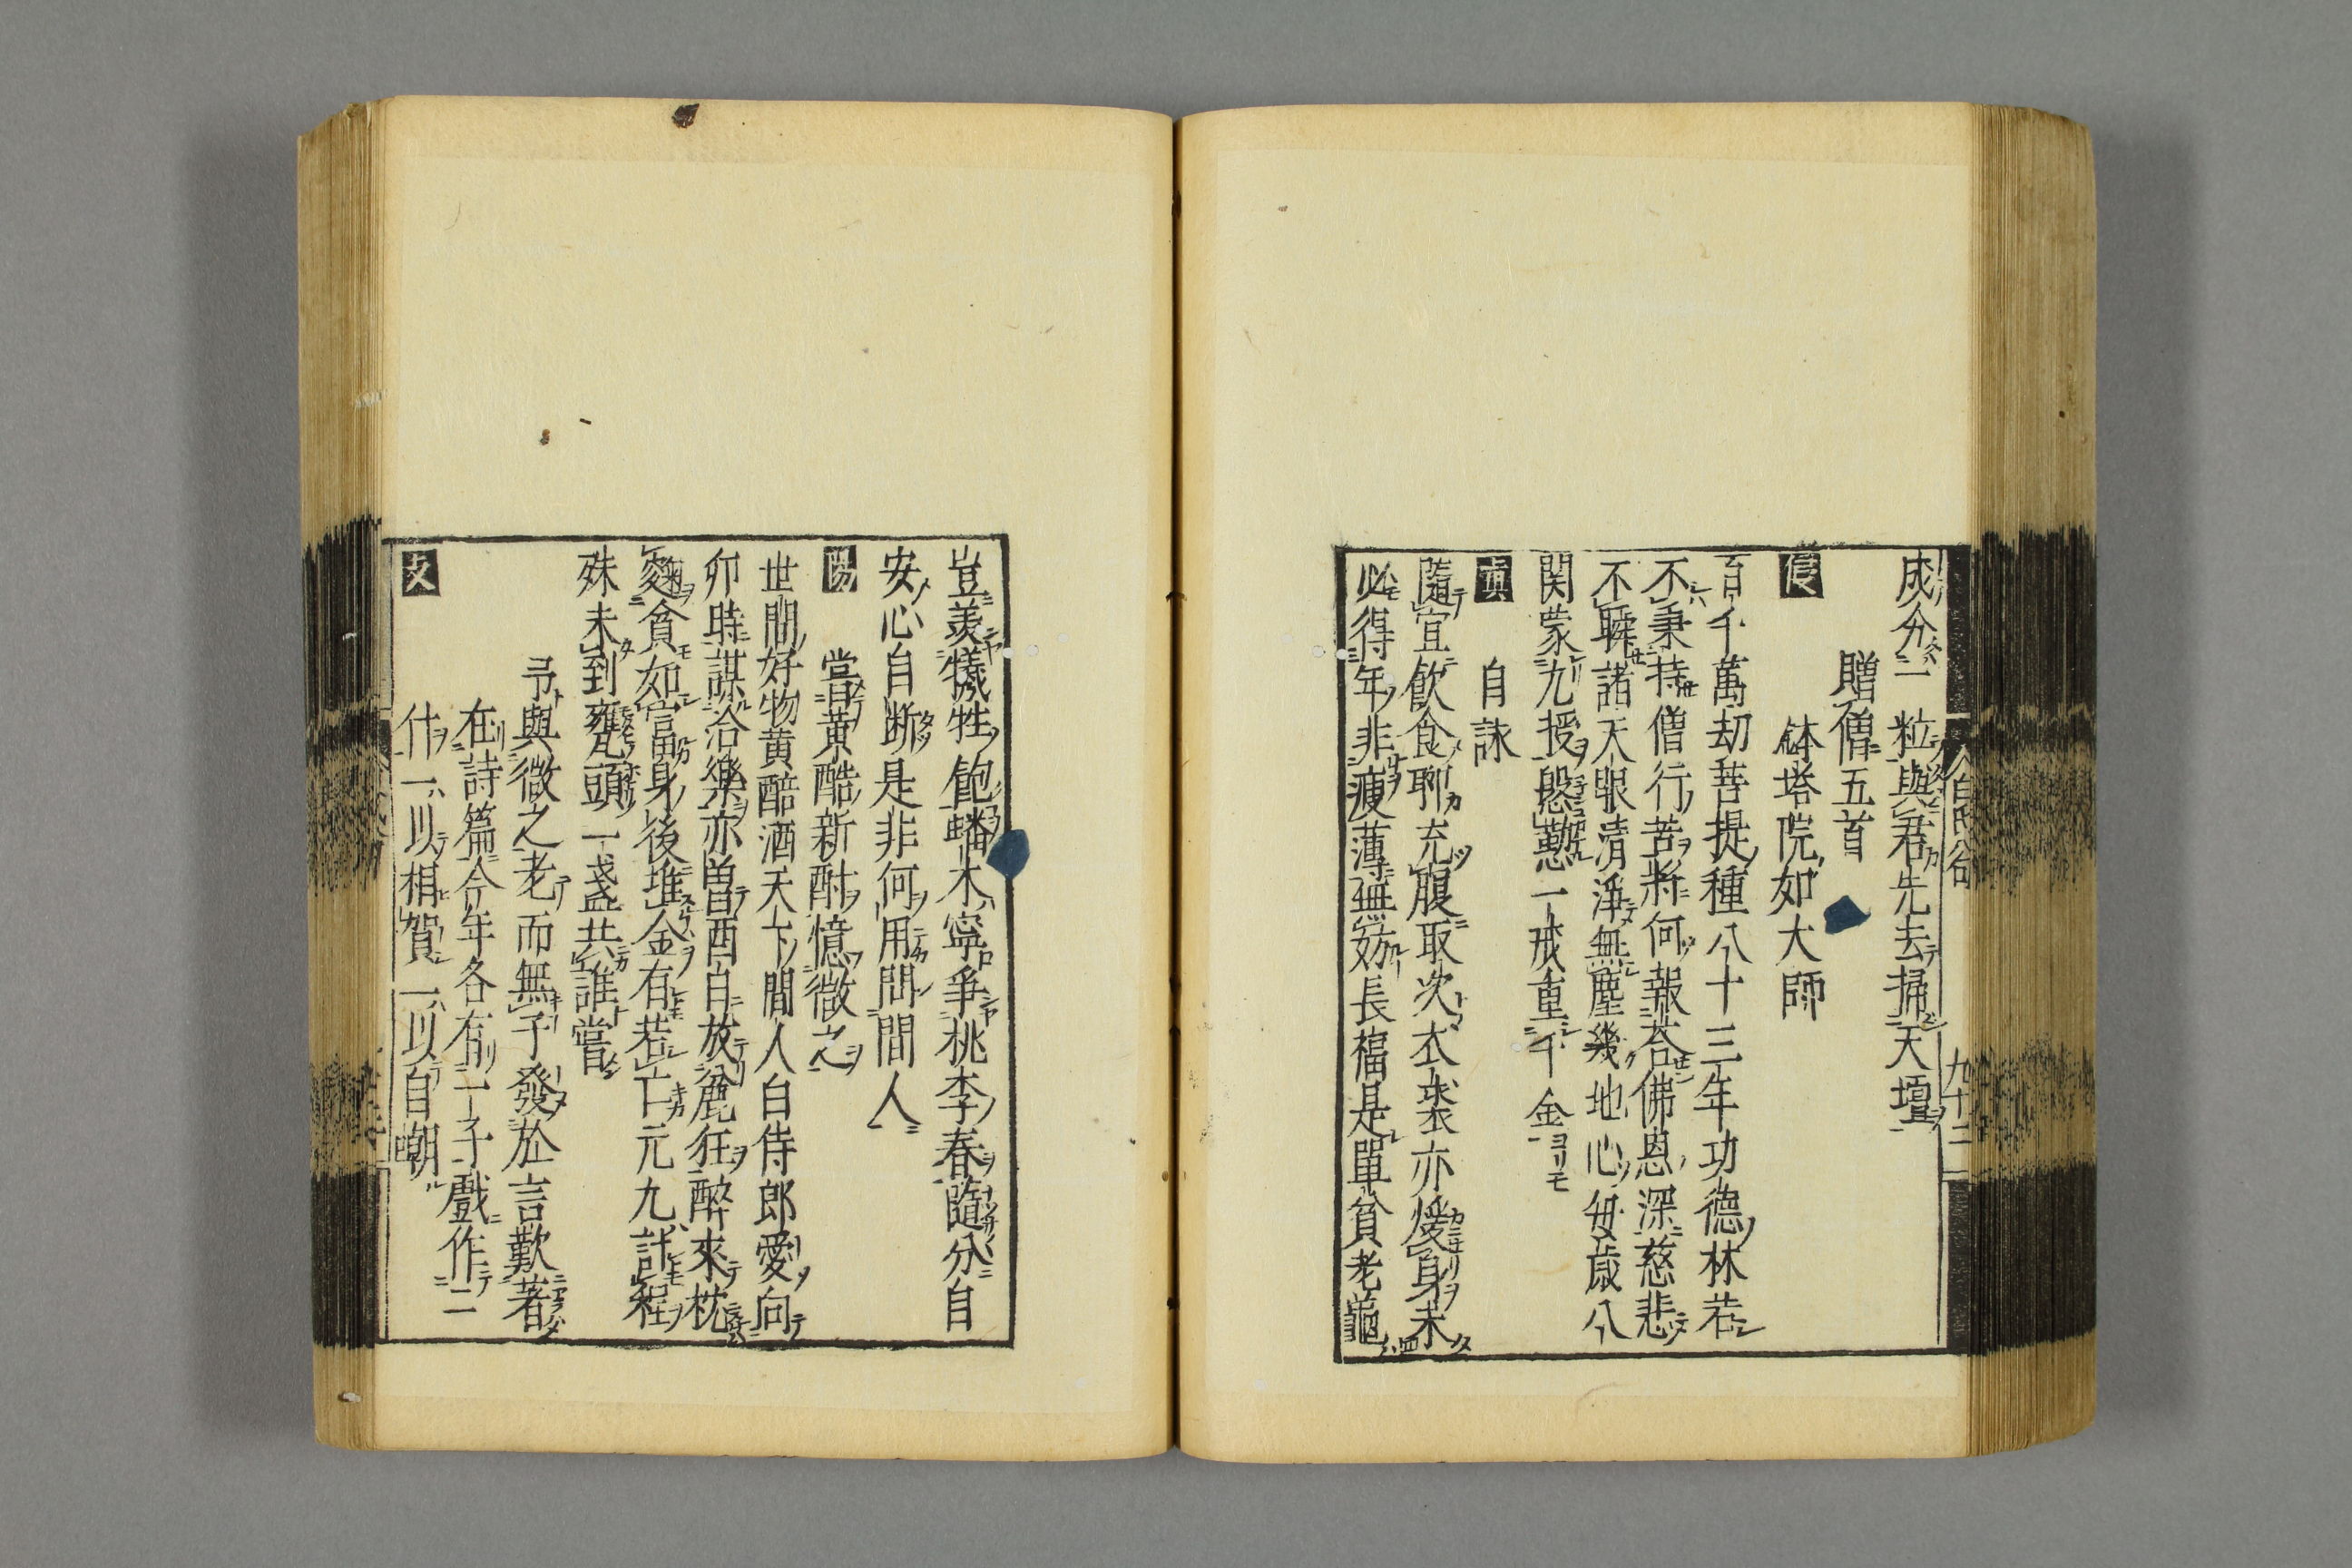 成分一粒與君先去掃天壇
贈僧五首
侵
鉢塔院如大師
百千萬劫菩提種八十三年功德林若
不秉持僧行苦將何報荅佛恩深慈悲
不瞬諸天眼清淨無塵幾地心每歲八
関蒙九授慇懃一戒重千金
真
自詠
隨宜飲食聊充腹取次衣裘亦煖身未
必得年非瘦薄無妨長福是單貧老龜
豈羨犧牲飽蟠木寧爭桃李春隨分自
安心自断是非何用問閒人
陽
嘗黄醅新酎憶微之
世間好物黄醅酒天下閒人白侍郎愛向
卯時謀洽樂亦曽酉日放麁狂醉來枕
麴貧如富身後堆金有若亡元九計程
殊未到甕頭一盞共誰嘗
予與微之老而無子發於言歎著
在詩篇今年各有一子戲作二
什一以相賀一以自嘲
支
白氏谷
九十二